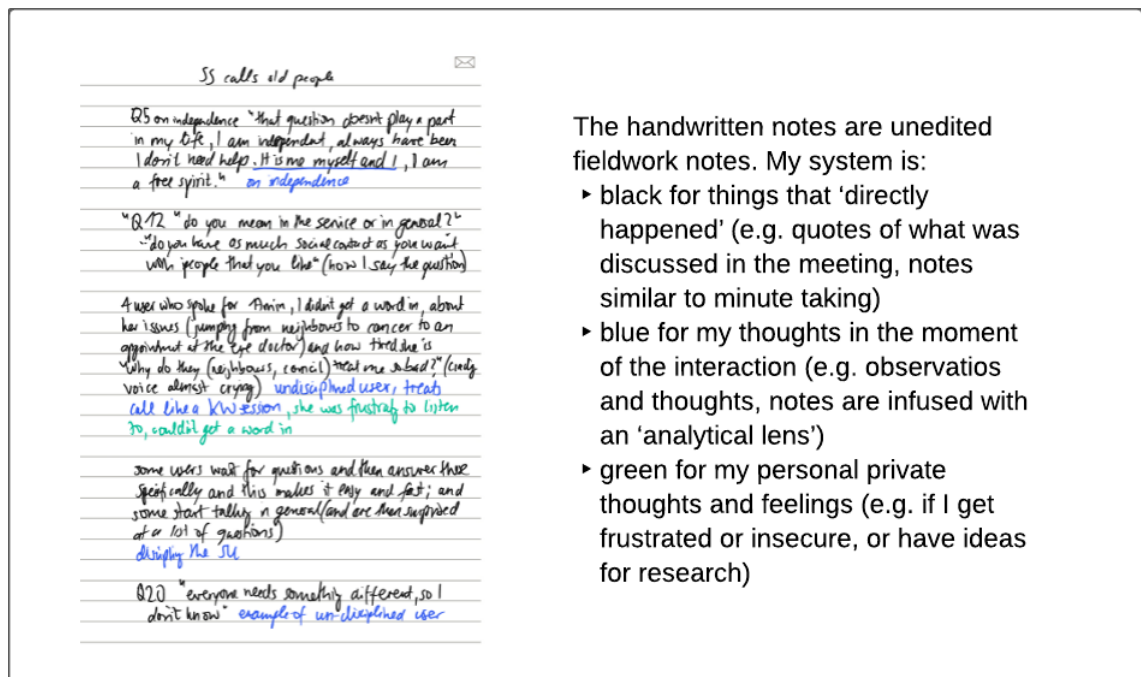 SS calls old people
Q5 on independence "that question doesnt play a part
in my life, I am independent, always have been
I don't need help. It is me myself and I, I am
a free spirit." on independence
"Q12 "do you mean in the service or in general?"
"do you have as much social contact as you want
with people that you like" (how I say the question)
A user who spoke for 7 min, I didn't get a word in, about
her issues (jumping from neighbours to cancer to an
appointment at the eye doctor) and how tired she is
"Why do they (neighbours, council) treat me so bad?" (
voice almost crying) undisciplined user, treats
call like a KW session, she was frustratg to listen
to, couldn't get a word in
some users wait for questions and then answer those
specifically and this makes it easy and fast; and
some start talking in general (and are then surprised
at a lot of questions)
the SU
Q20 "everyone needs something different, so I
don't know" example of un-disciplined user
The handwritten notes are unedited
fieldwork notes. My system is:
‣ black for things that ‘directly
happened’ (e.g. quotes of what was
discussed in the meeting, notes
similar to minute taking)
‣ blue for my thoughts in the moment
of the interaction (e.g. observatios
and thoughts, notes are infused with
an ‘analytical lens’)
‣ green for my personal private
thoughts and feelings (e.g. if I get
frustrated or insecure, or have ideas
for research)